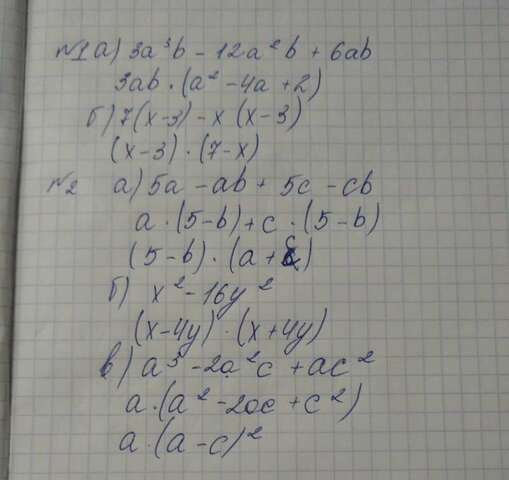 №1 а) 3a³b - 12a²b + 6ab
3ab · (a² - 4a + 2)
б) 7(x-3) - x(x-3)
(x-3) · (7-x)
№2 а) 5a - ab + 5c - cb
a · (5-b) + c · (5-b)
(5-b) · (a + c)
б) x² - 16y²
(x-4y) · (x+4y)
в) a³ - 2a²c + ac²
a · (a² - 2ac + c²)
a · (a - c)²